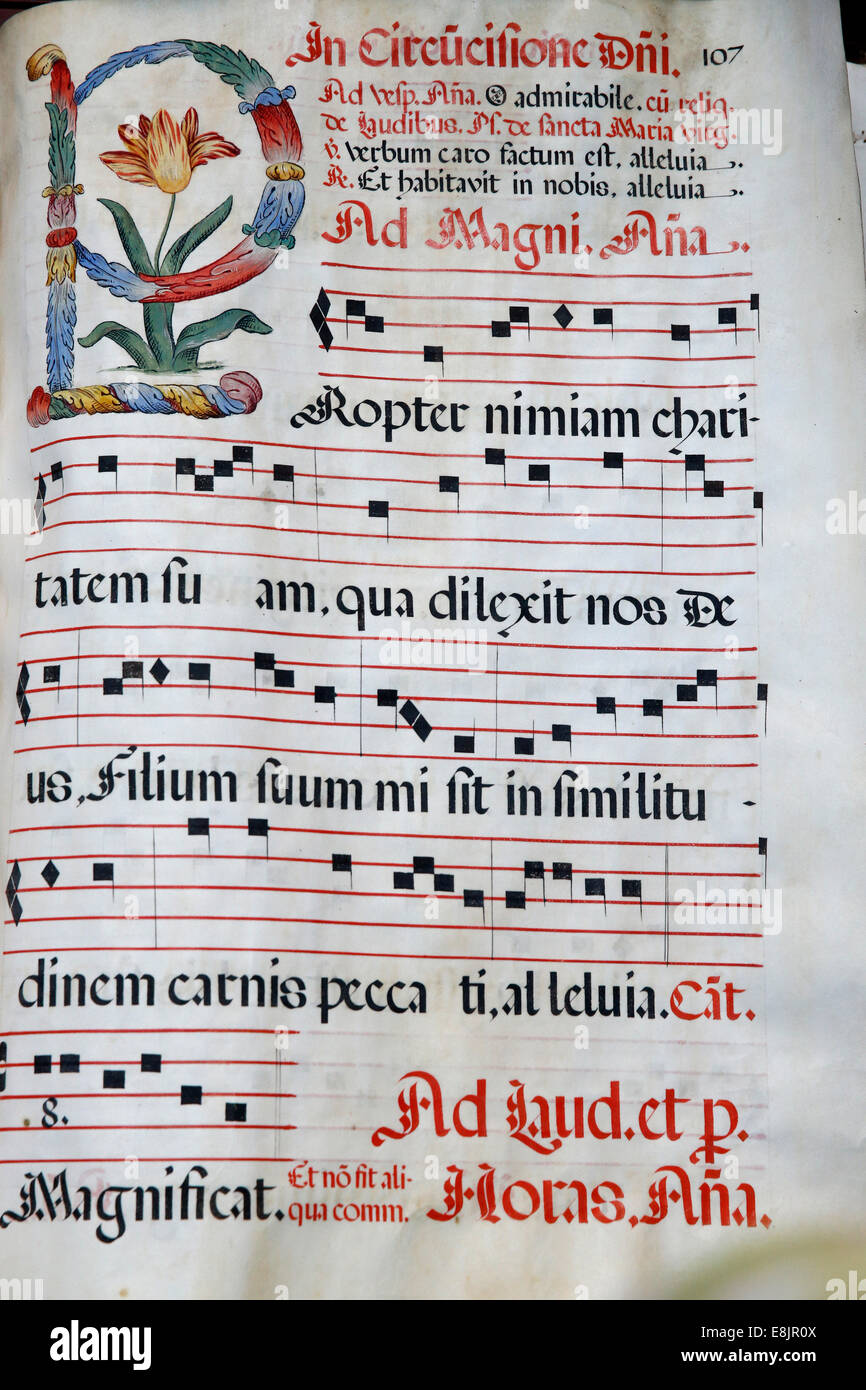 In Circūcisione Dñi. 107
Ad Vesp. Aña. O admirabile. cū reliq.
de Laudibus. Ps. de sancta Maria virg.
V. Verbum caro factum est, alleluia.
R. Et habitavit in nobis, alleluia.
Ad Magni. Aña.
PRopter nimiam chari-
tatem ſu am, qua dilexit nos De
us, Filium ſuum mi ſit in ſimilitu -
dinem carnis pecca ti, al leluia. Cāt.
8.
Ad Laud. et p̱.
Magnificat. Et nō fit ali-
qua comm. Horas. Aña.
alamy
alamy
Image ID: E8JR0X
www.alamy.com